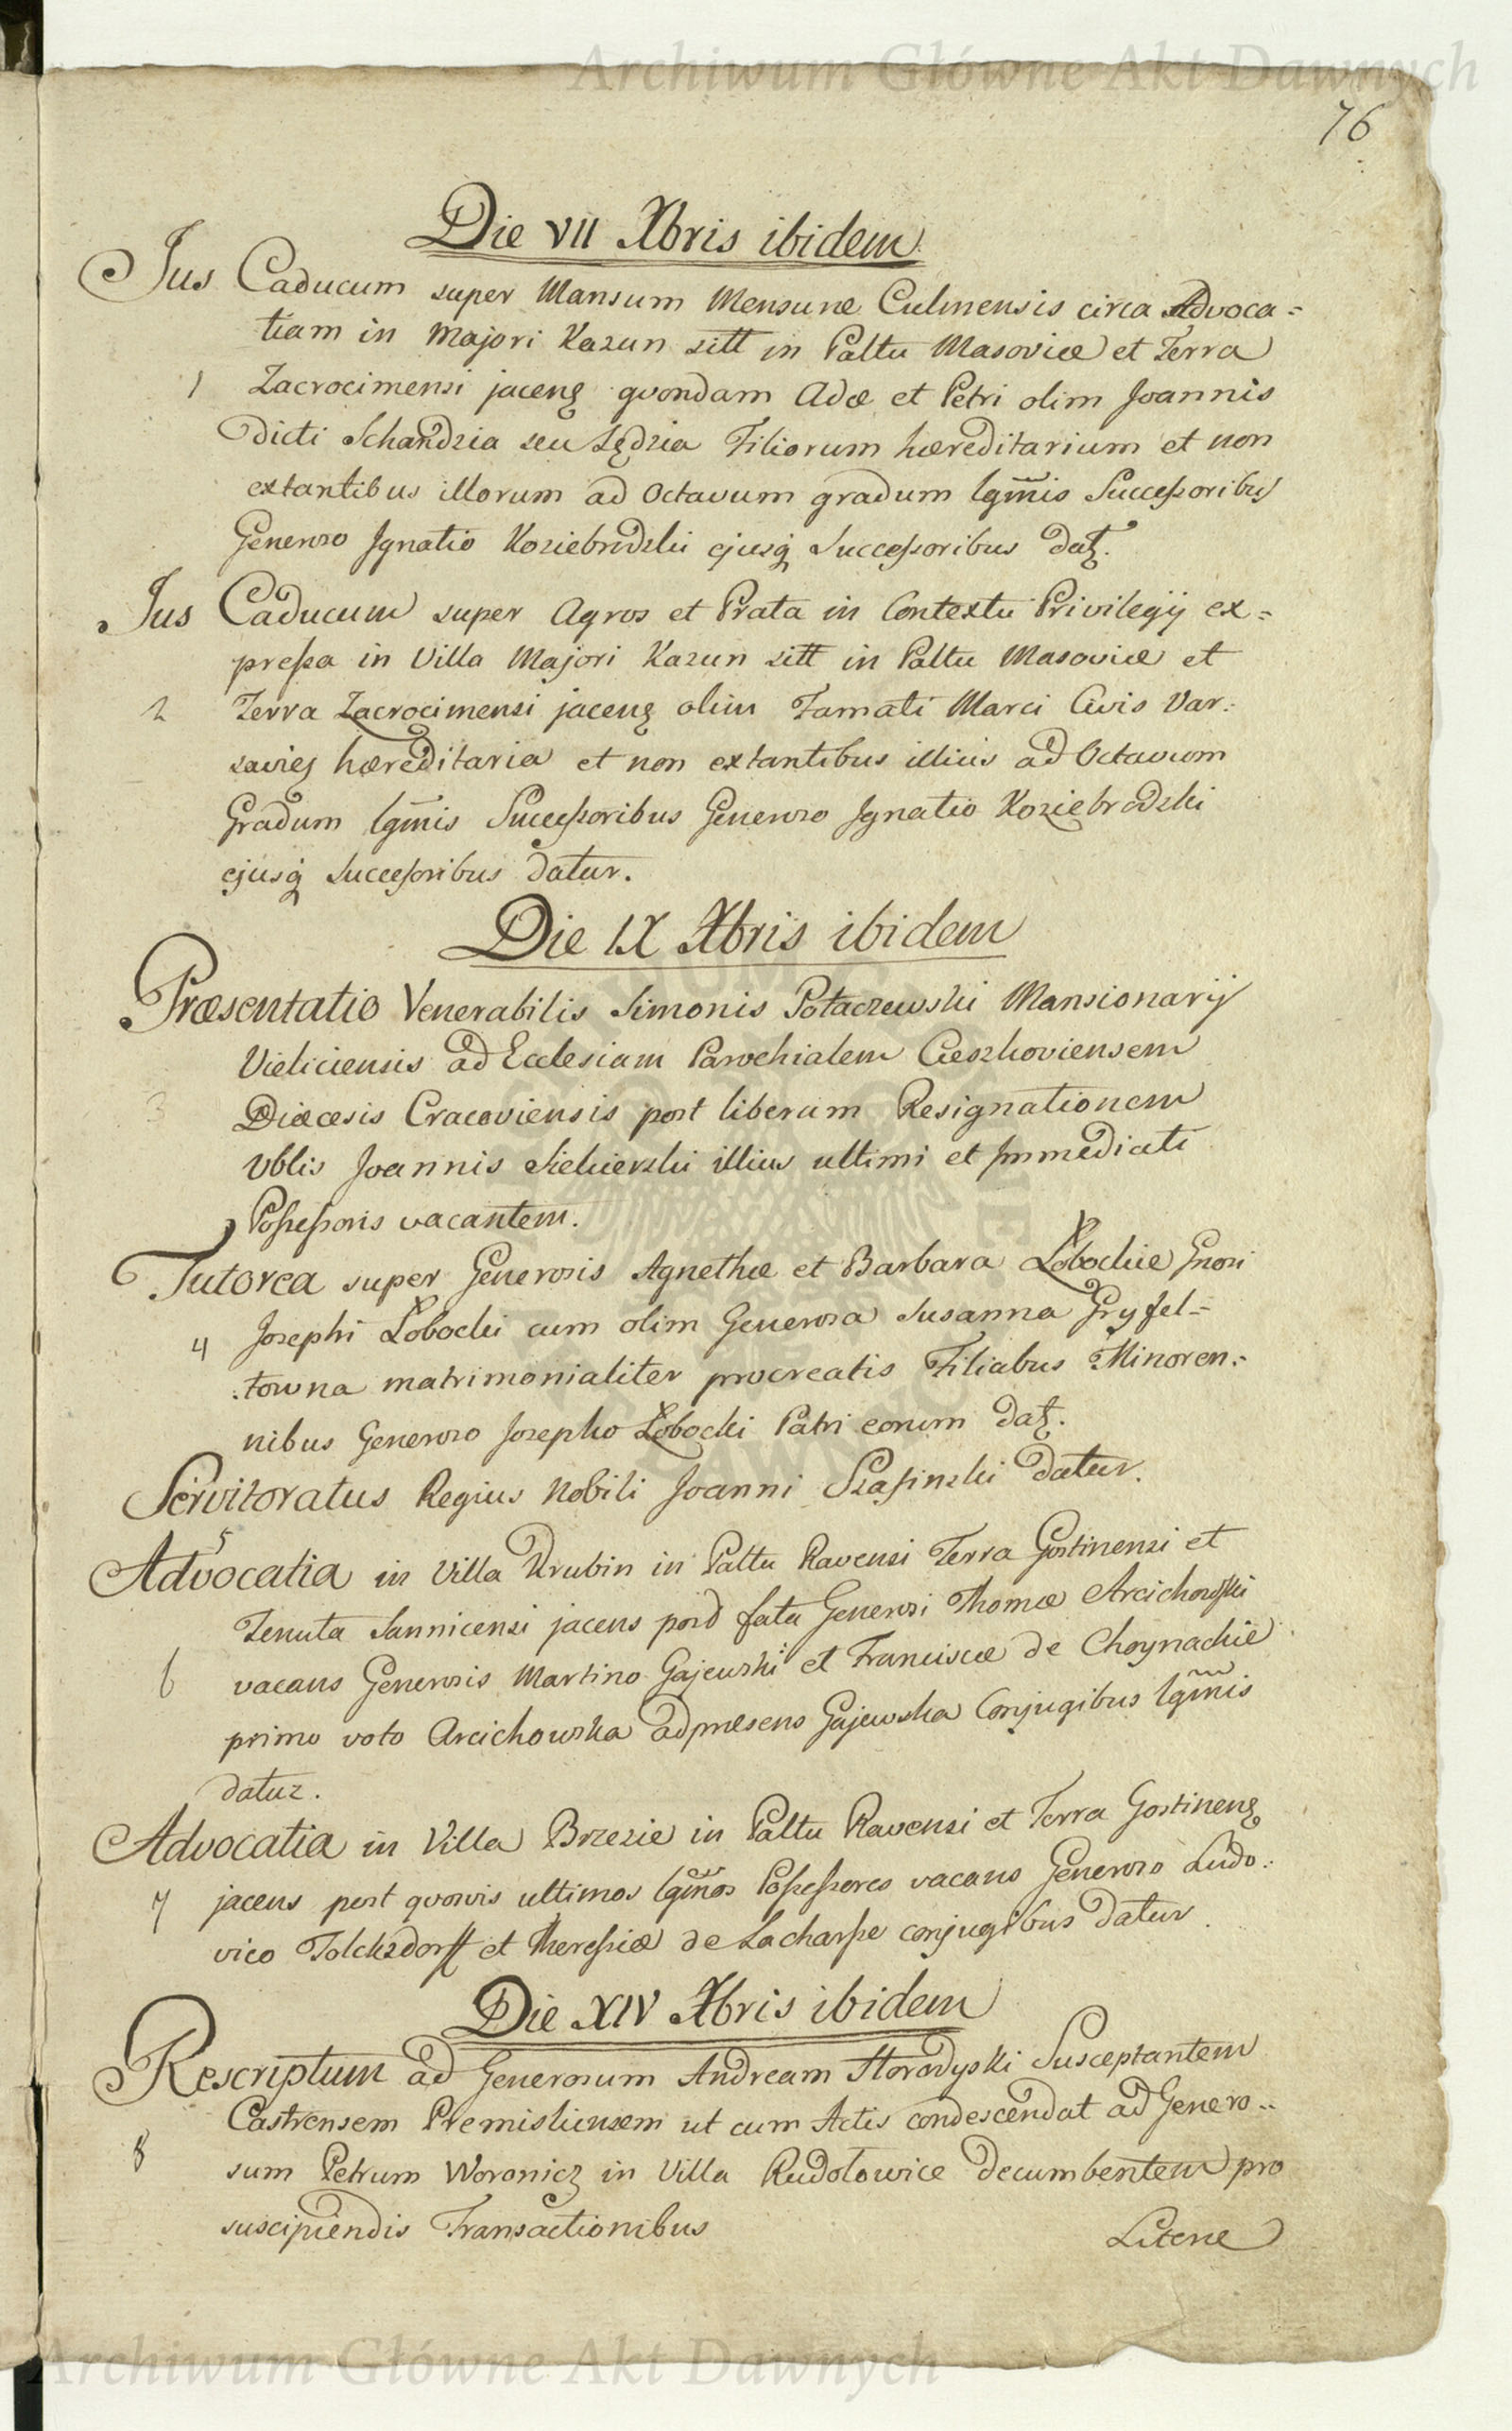 Archiwum Główne Akt Dawnych
76
Die VII Xbris ibidem
Jus Caducum super Mansum Mensuræ Culmensis circa Advoca=
tiam in Majori Kazun sitt in Palttu Masoviæ et Terra
1 Zacrocimensi jacenẓ quondam Adæ et Petri olim Joannis
dicti Schandzia seu Sędzia Filiorum hæreditarium et non
extantibus illorum ad Octavum gradum lgmis Successoribus
Generoso Ignatio Koziebrodzki ejusq Successoribus datz.
Jus Caducum super Agros et Prata in Contextu Privilegij ex=
pressa in Villa Majori Kazun sitt in Palttu Masoviæ et
2 Terra Zacrocimensi jacenẓ olim Famati Marci Civis Var:
savieẓ hæreditaria et non extantibus illius ad Octavum
Gradum lgmis Successoribus Generoso Ignatio Koziebrodzki
ejusq Successoribus datur.
Die IX Xbris ibidem
Præsentatio Venerabilis Simonis Potaczewski Mansionarij
Vieliciensis ad Ecclesiam Parochialem Cieszkoviensem
3 Diæcesis Cracoviensis post liberam Resignationem
Vblis Joannis Siekierski illius ultimi et Immediati
Possessoris vacantem.
Tutorea super Generosis Agnethæ et Barbara Łobockie Gnosi
4 Josephi Łobocki cum olim Generosa Susanna Gryfel=
:towna matrimonialiter procreatis Filiabus Minoren:
nibus Generoso Josepho Łobocki Patri eorum datz.
Servitoratus Regius Nobili Joanni Szasinski datur.
5
Advocatia in Villa Krubin in Palttu Ravensi Terra Gostinensi et
Tenuta Sannicensi jacens post fata Generosi Thomæ Arcichowski
6 vacans Generosis Martino Gajewski et Franciscæ de Choynackie
primo voto Arcichowska adpræsens Gajewska Conjugibus lgmis
datur.
Advocatia in Villa Brzezie in Palttu Ravensi et Terra Gostinenẓ
7 jacens post quosvis ultimos lgmos Possessores vacans Generoso Ludo:
vico Tolcksdorff et Theressiæ de Lacharsse conjugibus datur.
Die XIV Xbris ibidem
Rescriptum ad Generosum Andream Horodyski Susceptantem
Castrensem Premisliensem ut cum Actis condescendat ad Genero:
8 sum Petrum Woronicz in Villa Rudołowice decumbentem pro
suscipiendis Transactionibus
Literæ
Archiwum Główne Akt Dawnych